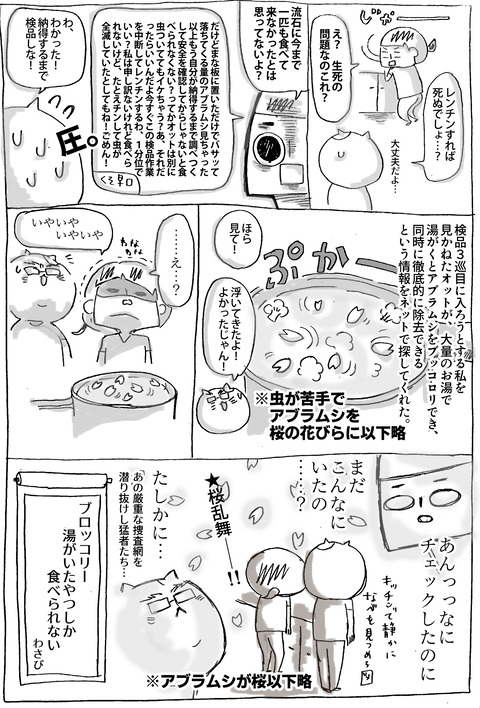 じが—
え？ 生死の
問題なのこれ？
レンチンすれば
死ぬでしょ…？
大丈夫だよ…
流石に今まで
一匹も食べて
来なかったとは
思ってないよ？
だけどまな板に置いただけで、バサッて
落ちてくる量のアブラムシ見ちゃった
以上もう自分が納得するまで調べつく
して安全を確認してからじゃないと食
べられなくない？ってかオットは別に
虫ついててもイケちゃう？あ、それだ
ったらいいんだよ今すぐこの検品作業
を中断してレンチンするわ、１分位で
いい？私は申し訳ないけれど食べら
れないけど、たとえチンして虫が
全滅していたとしてもね！ごめん！
くそ早口
わ、
わかった！
納得するまで
検品しな！
圧。
検品３巡目に入ろうとする私を
見かねたオットが、大量のお湯で
湯がくとアブラムシをブッコロリでき、
同時に徹底的に除去できる
という情報をネットで探してくれた。
ぷかー
ほら
見て！
浮いてきたよ！
よかったじゃん！
※虫が苦手で
アブラムシを
桜の花びらに以下略
……え…？
わなわな
いやいや
いやいや
あんっっなに
チェックしたのに
まだ
こんなに
いたの
……？
キッチンで静かに
なべを見つめる
★桜乱舞——!!
たしかに…
「あの厳重な捜査網を
潜り抜けし猛者たち…
※アブラムシが桜以下略
ブロッコリー
湯がいたやつしか
食べられない
わさび